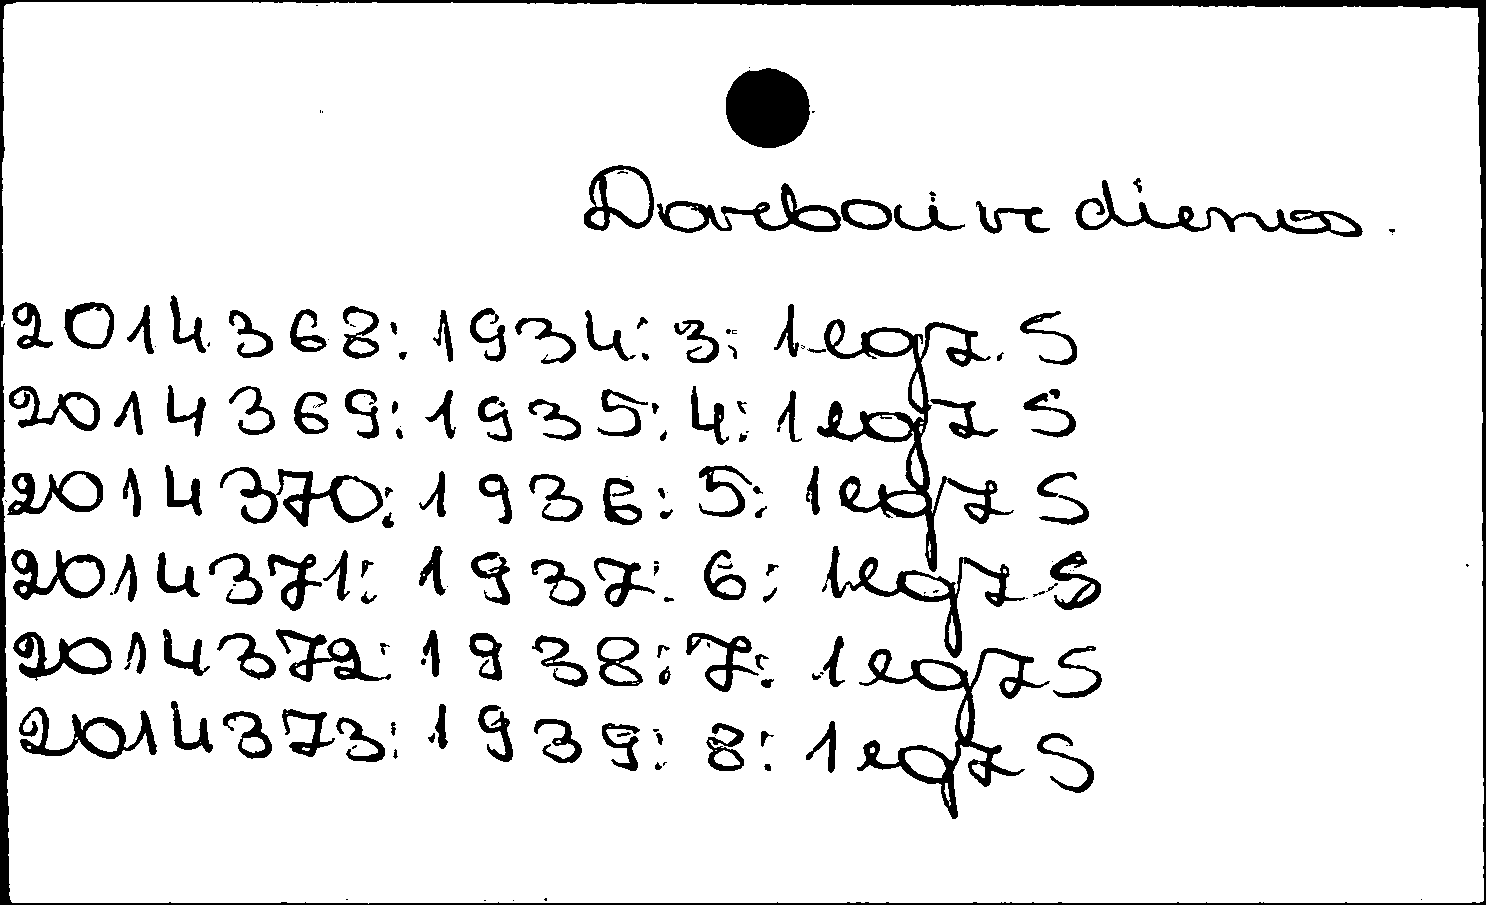 Darebaive dienos.
2014368: 1934: 3: 1 egz. S
2014369: 1935: 4: 1 egz S
2014370: 1936: 5: 1 egz S
2014371: 1937: 6: 1 egz S
2014372: 1938: 7: 1 egz S
2014373: 1939: 8: 1 egz S